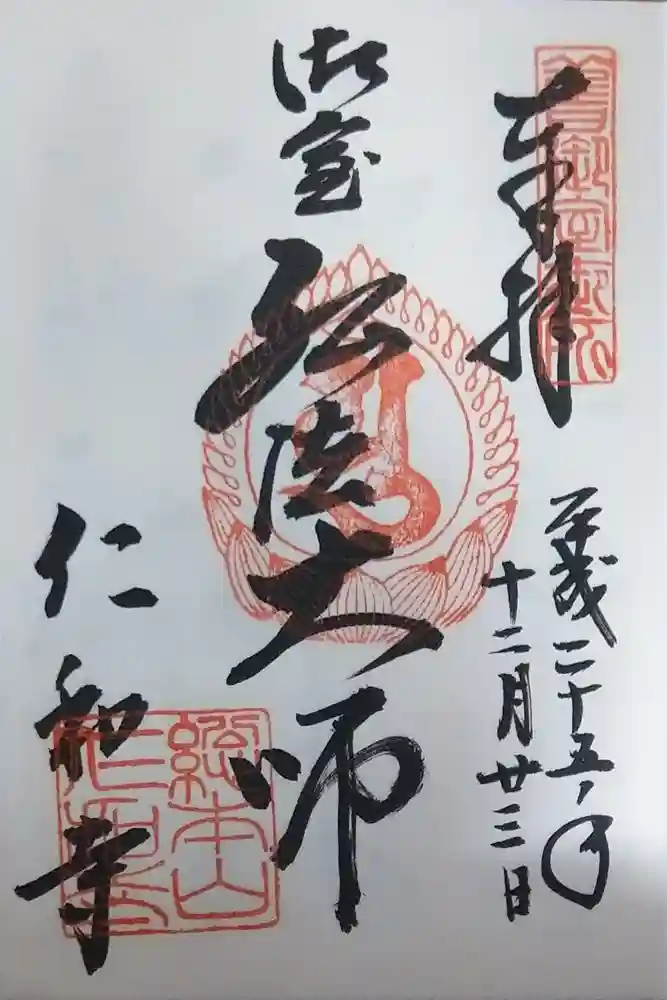 奉拝
平成二十五年
十二月廿三日
御室
弘法大師
仁和寺
旧御室御所
総本山
仁和寺